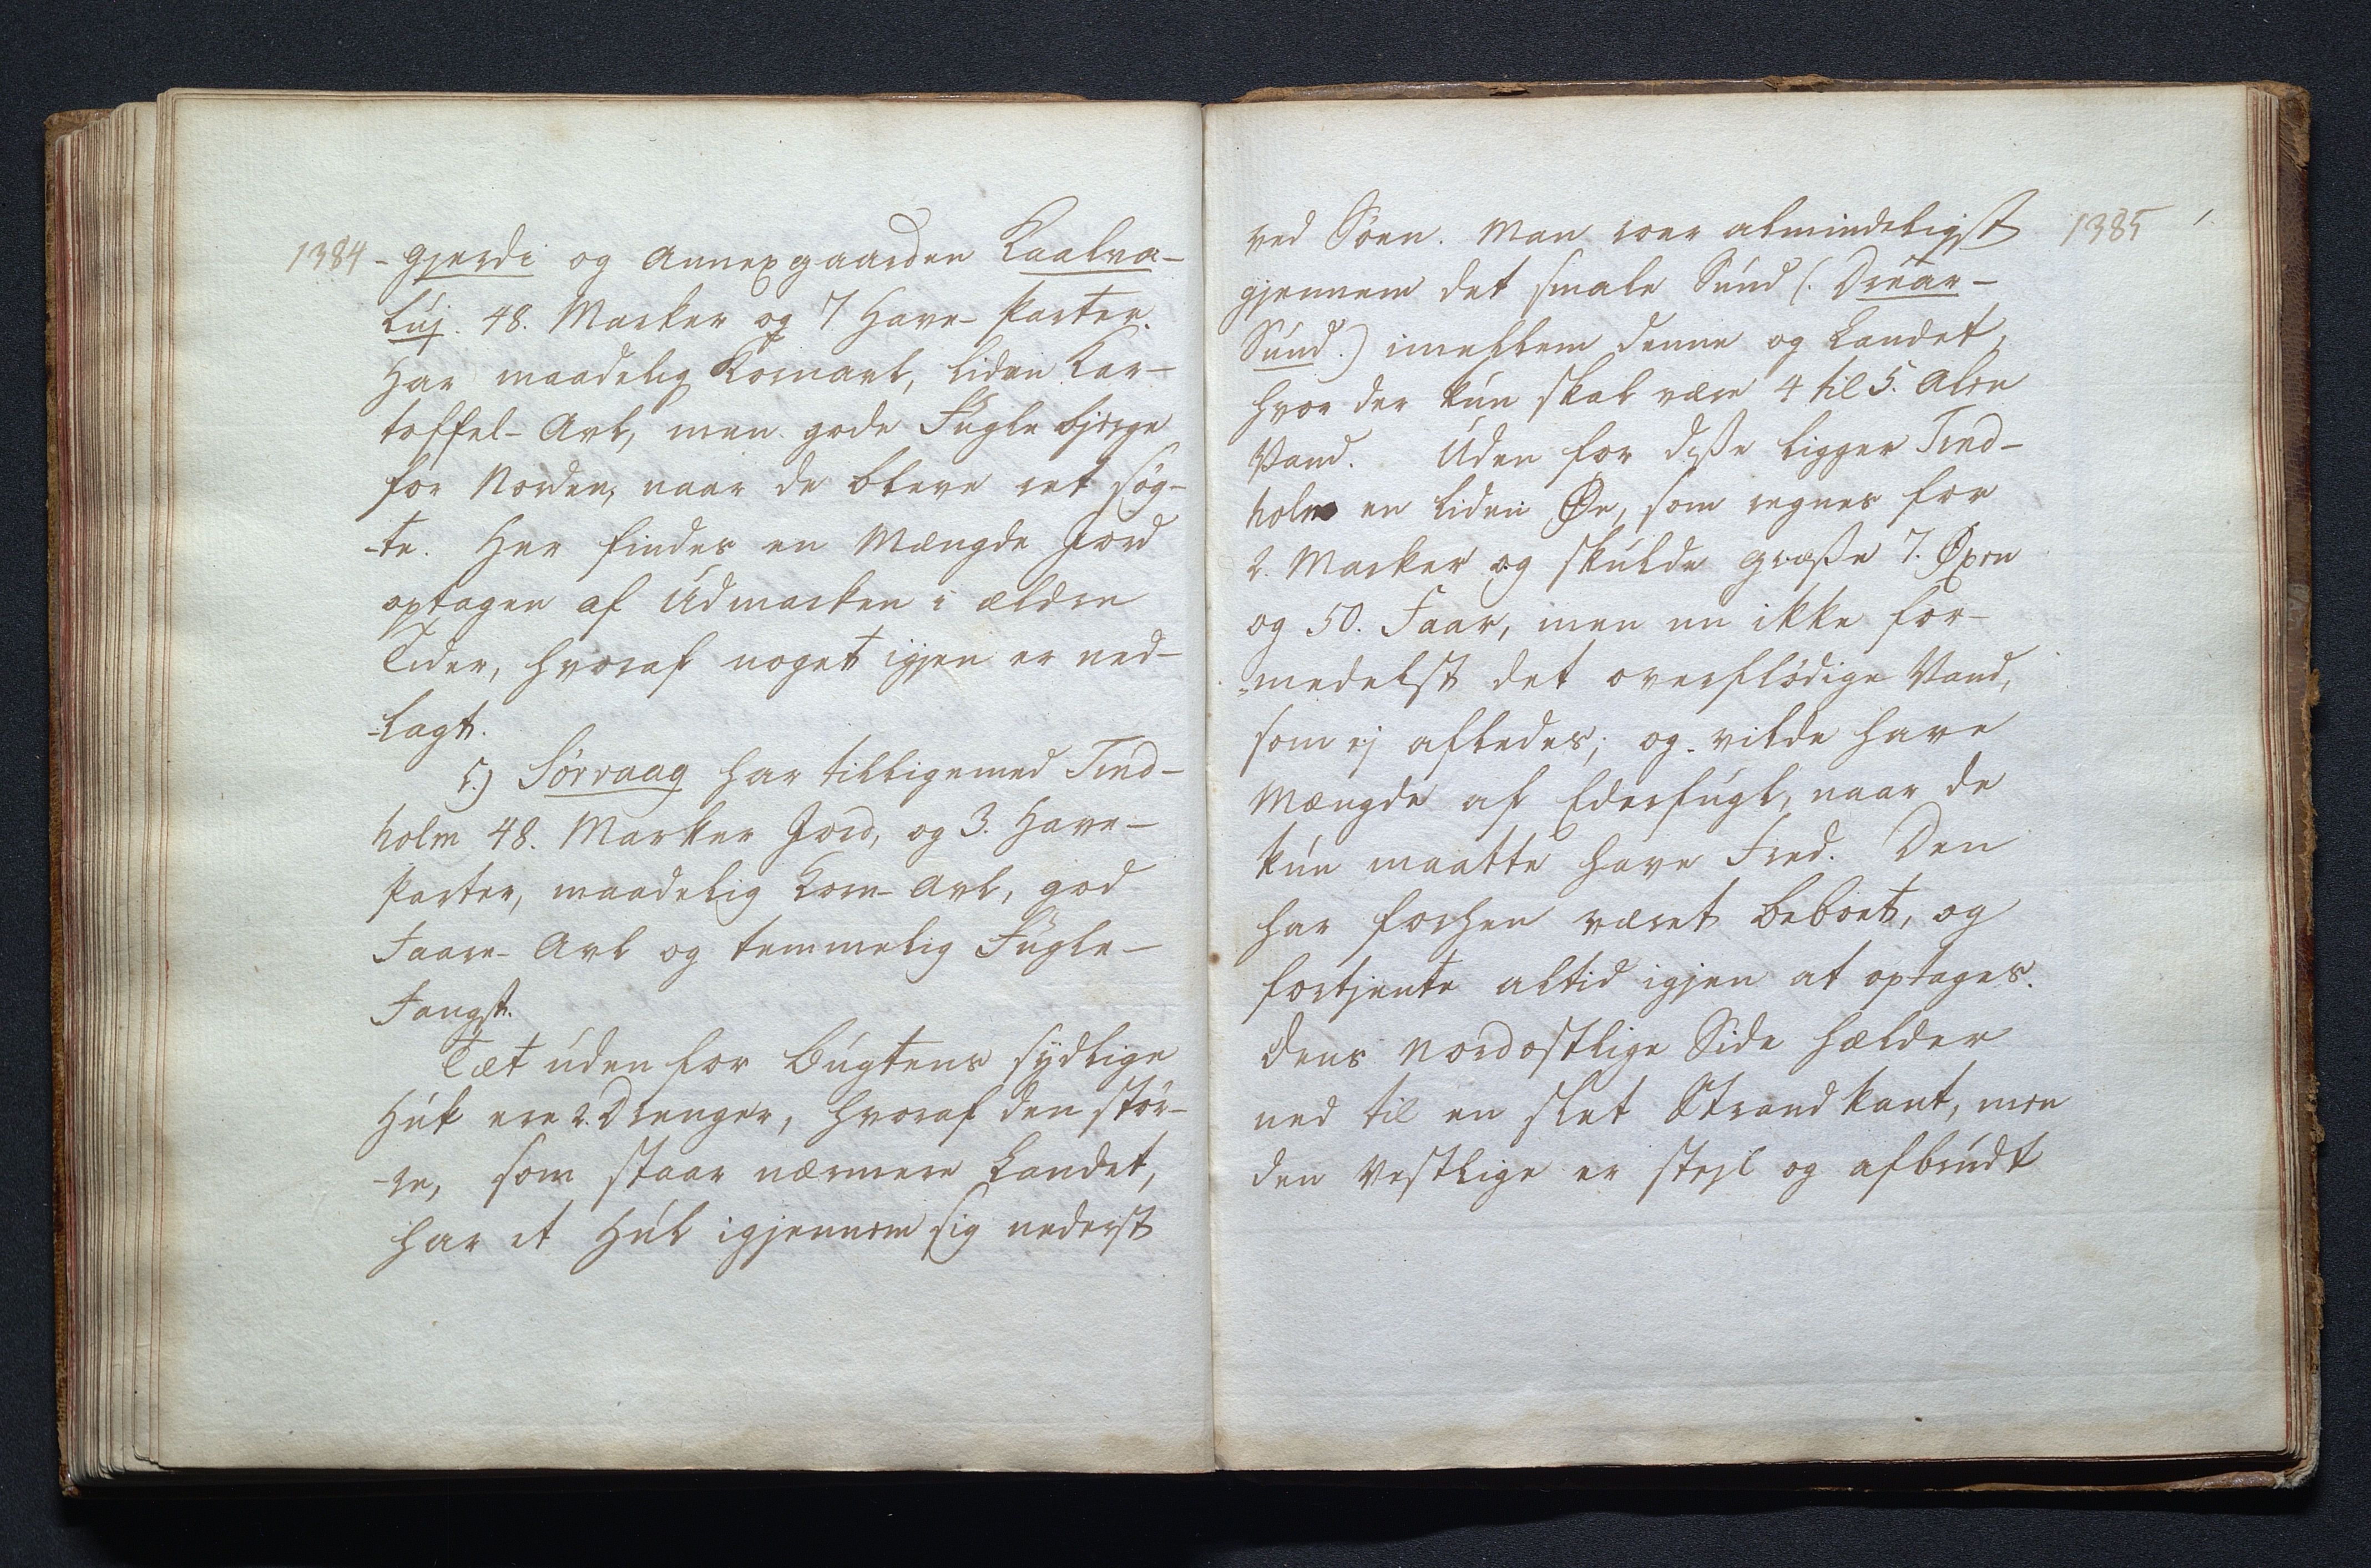 1384
-gjerdi og Annexgaarden Kaalva-
Luj. 48. Marker og 7 Have-Parter.
Har maadelig Kornavl, liden Kar-
toffel-Avl, men gode Fuglebjerge
for Norden, naar de bleve ret søg-
-te. Her findes en Mængde Jord
optagen af Udmarken i ældre
Tider, hvoraf noget igjen er ned-
-lagt.
5.) Sörvaag har tilligemed Tind-
holm 48. Marker Jord, og 3. Have-
Parter, maadelig Korn-Avl, god
Faare-Avl og temmelig Fugle-
Fangst.
Tæt uden for Bugtens sydlige
Huk ere 2. Drenger, hvoraf den stör-
-re, som staar nærmere Landet,
har et Hul igjennem sig nederst
1385
ved Söen. Man roer almindeligst
gjennem det smale Sund (: Drear-
Sund:) imellem denne og Landet,
hvor der kun skal være 4 til 5. Alen
Vand. Uden for disse ligger Tind-
holm en liden Øe, som regnes for
2. Marker og skulde græsse 7. Øxen
og 50. Faar, men nu ikke for-
-medelst det overflödige Vand,
som ej afledes; og vilde have
Mængde af Ederfugl, naar de
kun maatte have Fred. Den
har forhen været beboet, og
fortjente altid igjen at optages.
Dens nordostlige Side hælder
ned til en slet Strandkant, men
den vestlige er stejl og afbrudt